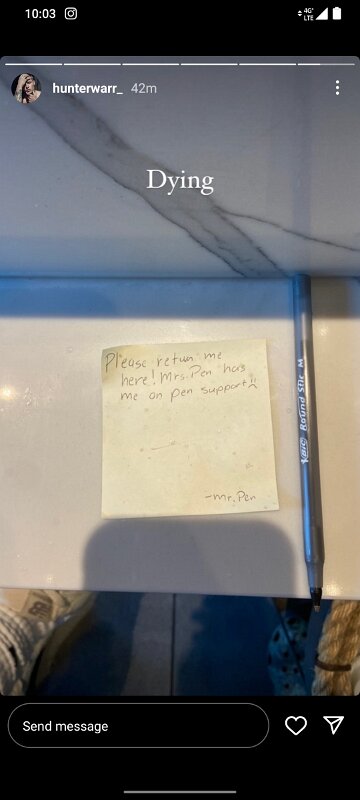 10:03
4G+
LTE
hunterwarr_ 42m
Dying
Please retun me
here! Mrs. Pen has
me on pen support!!
-Mr. Pen
BIC Round Stic M
Send message